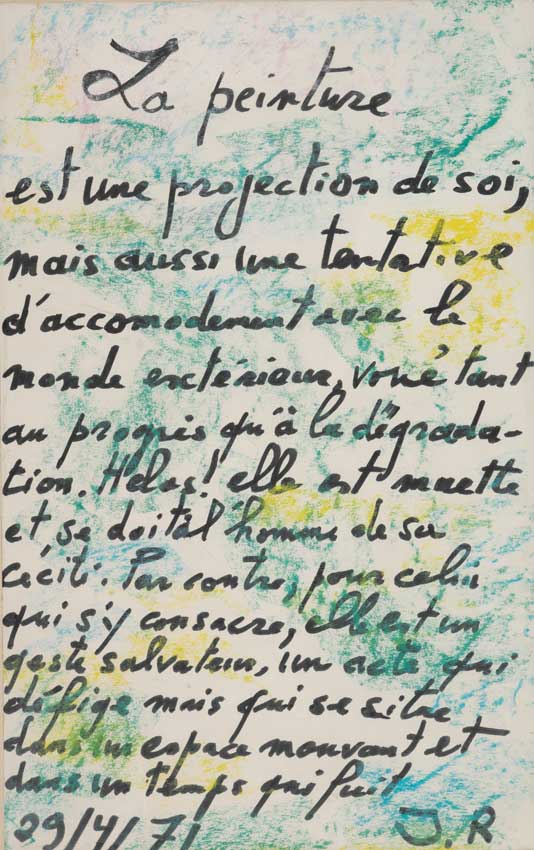 La peinture
est une projection de soi,
mais aussi une tentative
d'accomodement avec le
monde extérieur, voué tant
au progrès qu'à la dégrada-
tion. Helas! elle est muette
et se doit à l'homme de sa
cécité. Par contre, pour celui
qui s'y consacre, elle est un
geste salvateur, un acte qui
défige mais qui se sitre
dans un espace mouvant et
dans un temps qui fuit
29/4/71 J.R